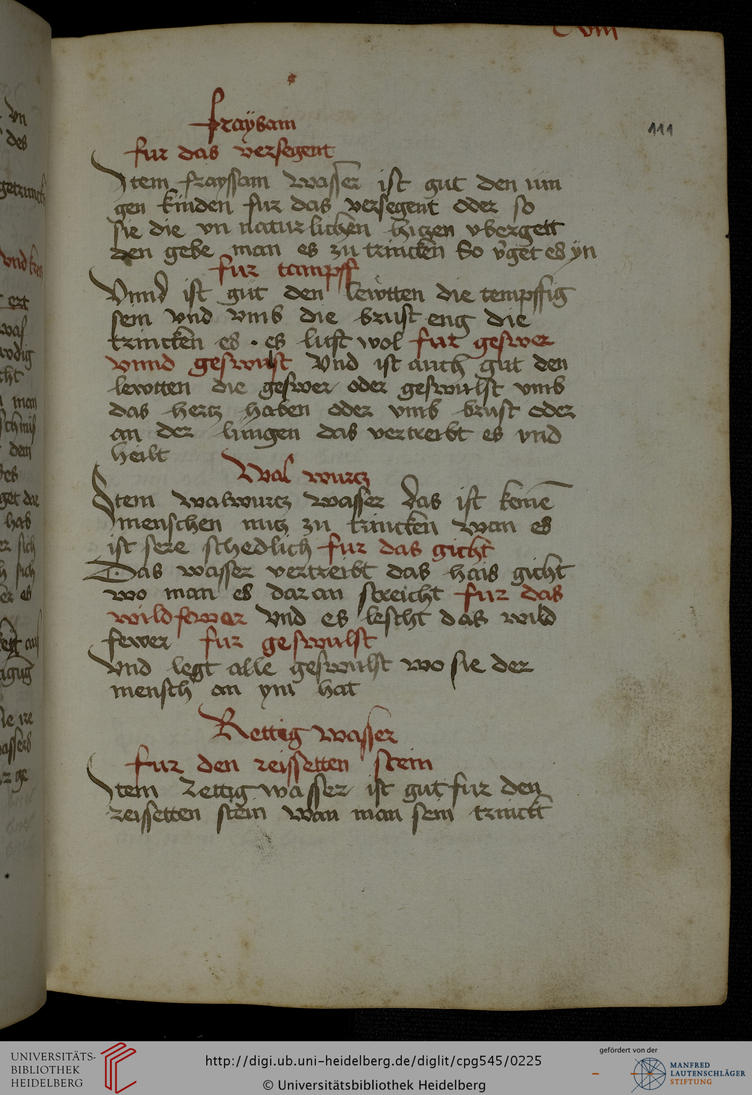 C viii
111
fraysam
fur das versegent
Item frayssam wasser ist gut den iun
gen kinden fur das versegent oder so
sie die vn naturlichen hiczen vbergett
den gebe man es zu trincken So v̈get es yn
fur tampff
Vnnd ist gut den lewtten die tempffig
sein vnd vmb die brust eng die
trincken es . es luft wol fur geswer
vnnd geswulst Vnd ist auch gut den
lewtten die geswer oder geswulst vmb
das hercz haben oder vmb brust oder
an der lungen das vertreibt es vnd
heilt
Wal wurcz
Item walwurcz wasser das ist keinē
menschen nucz zu trincken wan es
ist sere schedlich fur das gicht
Das wasser vertreibt das hais gicht
wo man es dar an streicht fur das
wildfewer Vnd es lescht das wild
fewer fur geswulst
Vnd legt alle geswulst wo sie der
mensch an ym hat
Rettig wasser
fur den reissetten stein
Item rettig wasser ist gut fur den
reissetten stein wan man sein trinckt
UNIVERSITÄTS-
BIBLIOTHEK
HEIDELBERG
http://digi.ub.uni-heidelberg.de/diglit/cpg545/0225
© Universitätsbibliothek Heidelberg
gefördert von der
MANFRED
LAUTENSCHLÄGER
STIFTUNG